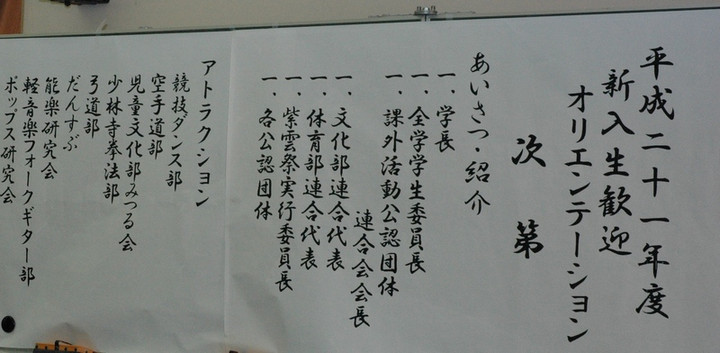 平成二十一年度
新入生歓迎
オリエンテーション
次第
あいさつ・紹介
一、学長
一、全学学生委員長
一、課外活動公認団体
連合会会長
一、文化部連合代表
一、体育部連合代表
一、紫雲祭実行委員長
一、各公認団体
アトラクション
競技ダンス部
空手道部
児童文化部みつる会
少林寺拳法部
弓道部
だんすぶ
能楽研究会
軽音楽フォークギター部
ポップス研究会